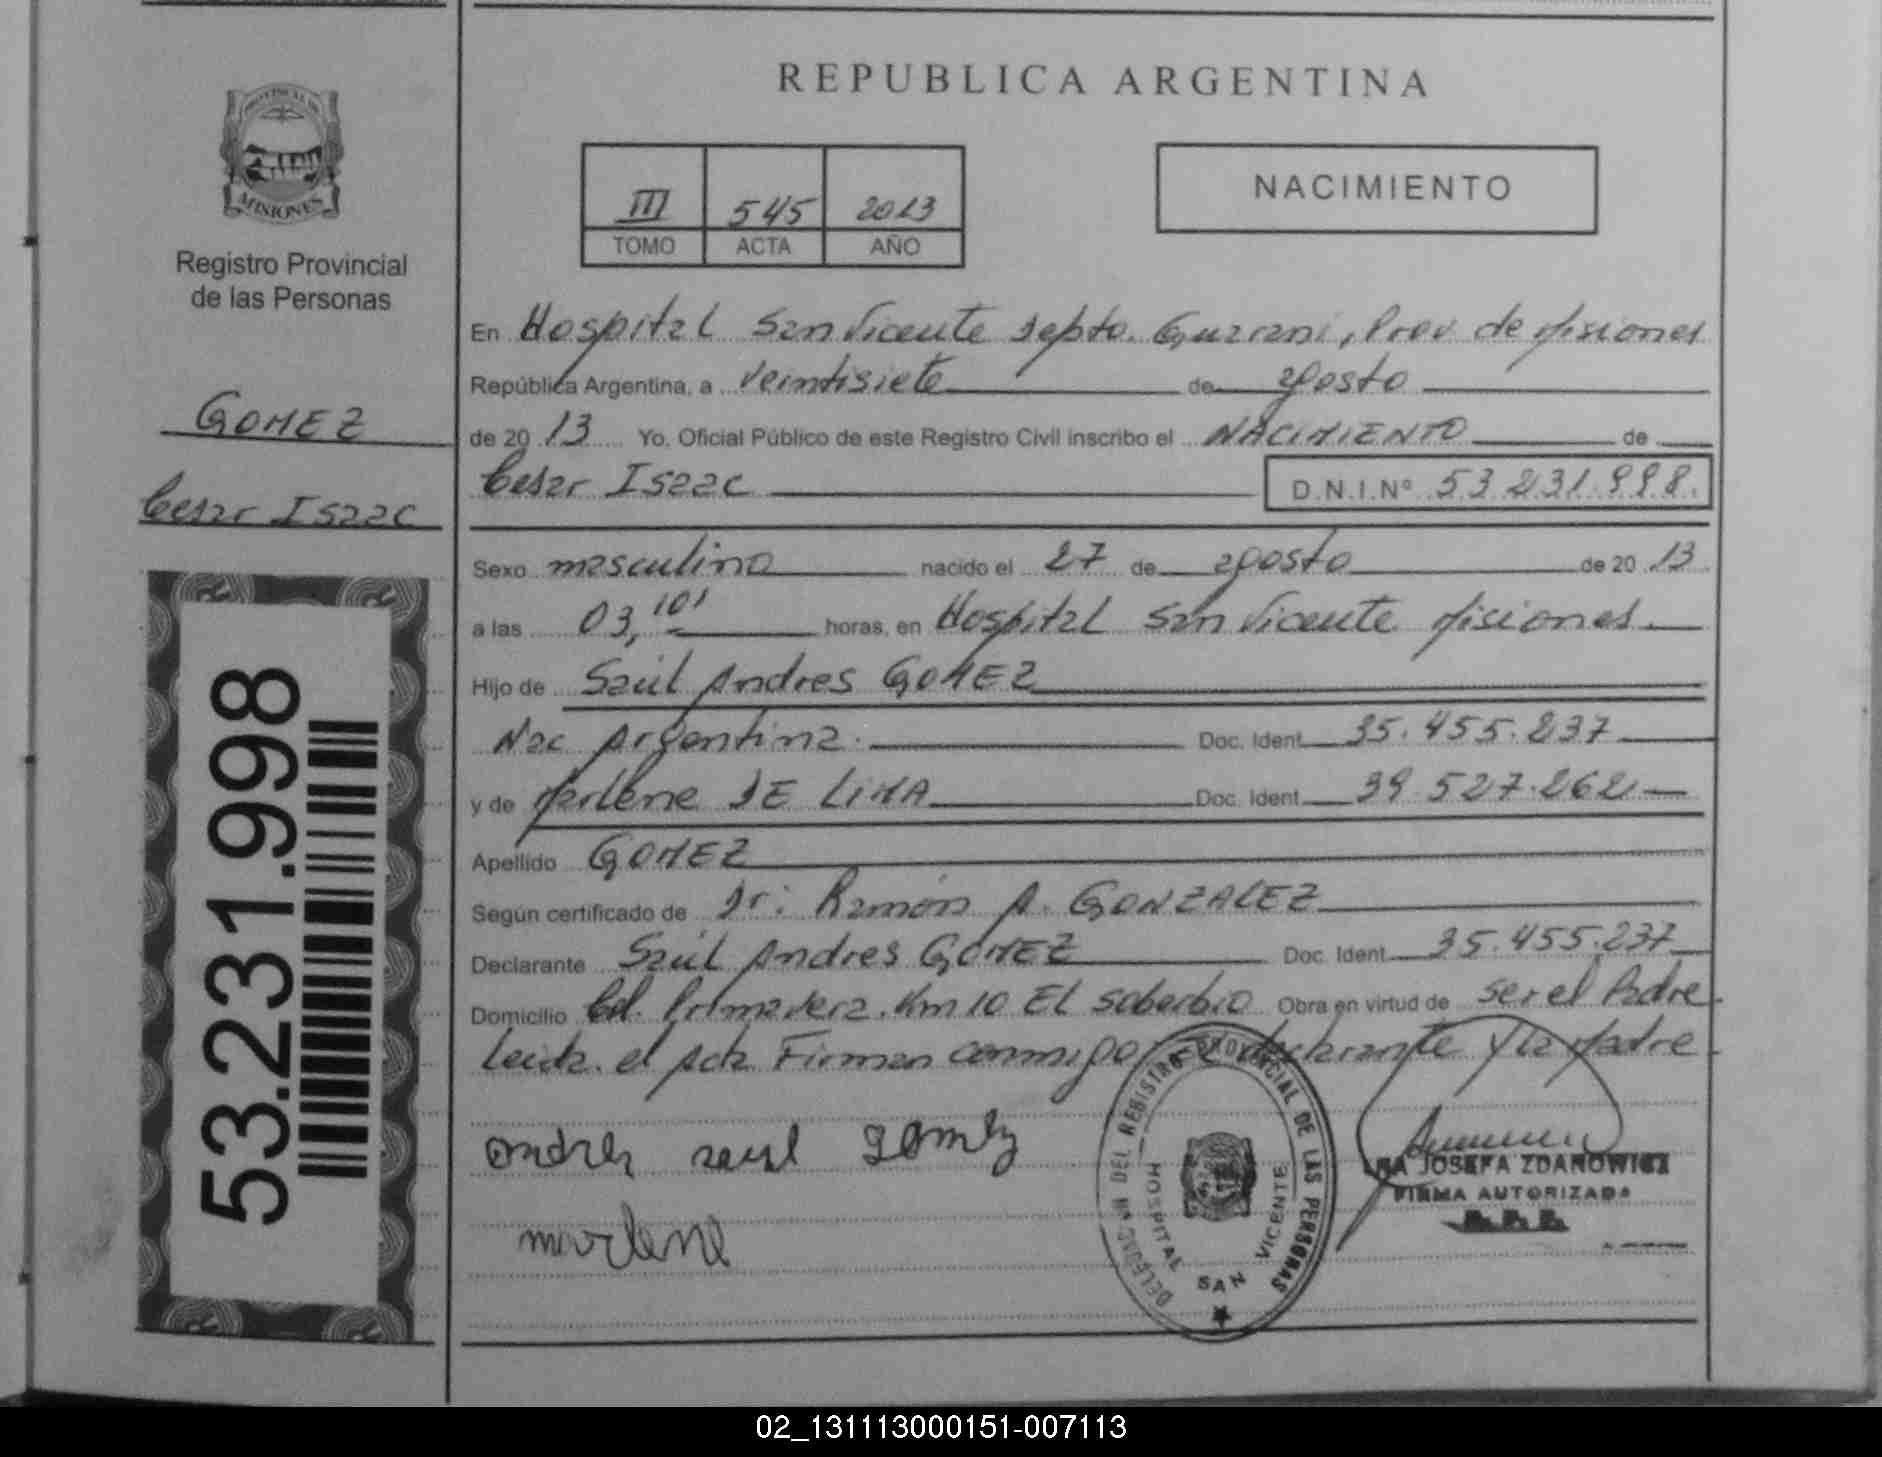 REPUBLICA ARGENTINA
PROVINCIA DE
MISIONES
Registro Provincial
de las Personas
GOMEZ
Cesar Isaac
53.231.998
III 545 2013
TOMO ACTA AÑO
NACIMIENTO
En Hospital San Vicente Depto. Guarani, Prov de Misiones
República Argentina, a veintisiete de agosto
de 20 13 Yo, Oficial Público de este Registro Civil inscribo el NACIMIENTO de
Cesar Isaac D.N.I.Nº 53 231.998.
Sexo masculino nacido el 27 de agosto de 20 13
a las 03,10' horas, en Hospital San Vicente Misiones
Hijo de Saúl Andres GOMEZ
Nac Argentina. Doc. Ident 35.455.237
y de Marlene DE LIMA Doc. Ident 39.527.262
Apellido GOMEZ
Según certificado de Dr: Ramón A. GONZALEZ
Declarante Saúl Andres GOMEZ Doc. Ident 35.455.237
Domicilio Col. Primavera. Km 10 El Soberbio Obra en virtud de ser el Padre
Leida el Acta Firman conmigo el declarante y la Madre
andres saul gomez
marlene
DELEGAC Nº DEL REGISTRO PROVINCIAL DE LAS PERSONAS
HOSPITAL SAN VICENTE
JOSEFA ZDANOWICZ
FIRMA AUTORIZADA
02_131113000151-007113